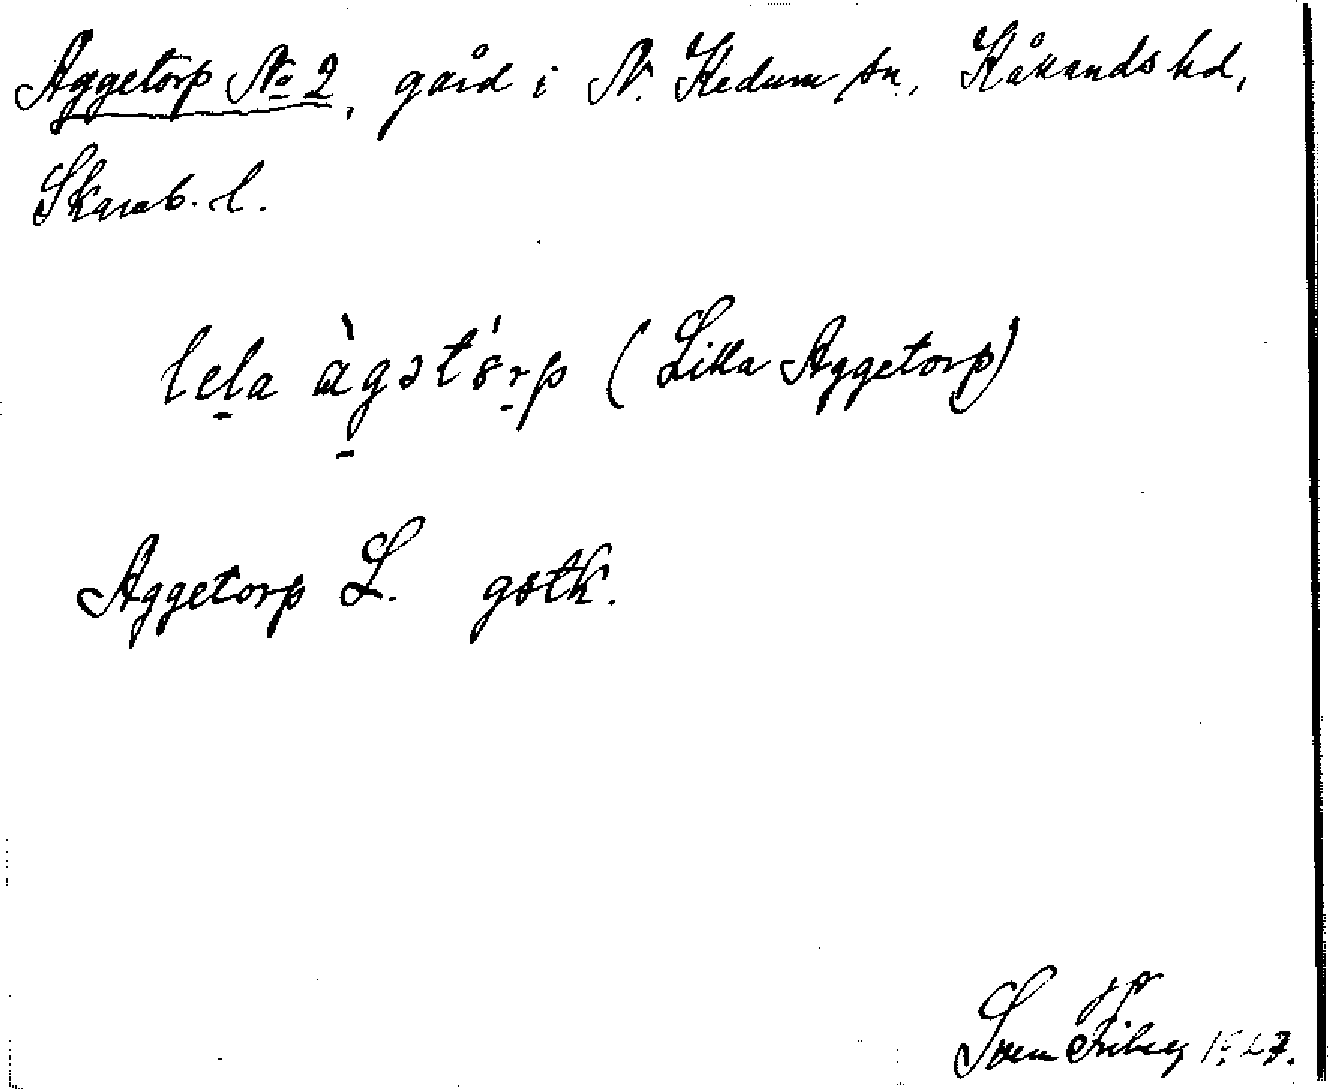 Aggetorp No 2, gård i N. Kedum sn., Kåkands hd,
Skarab. l.
lela àgətórp (Lilla Aggetorp)
Aggetorp L. gstk.
Sven Friberg 1927.